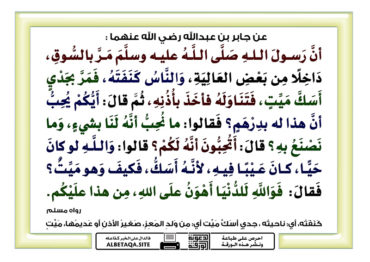 عن جابر بن عبدالله رضي الله عنهما :
أنَّ رَسولَ اللهِ صَلَّى اللَّهُ عليه وسلَّمَ مَرَّ بالسُّوقِ،
دَاخِلًا مِن بَعْضِ العَالِيَةِ، وَالنَّاسُ كَنَفَتَهُ، فَمَرَّ بجَدْيٍ
أَسَكَّ مَيِّتٍ، فَتَنَاوَلَهُ فأخَذَ بأُذُنِهِ، ثُمَّ قالَ: أَيُّكُمْ يُحِبُّ
أنَّ هذا له بدِرْهَمٍ؟ فَقالوا: ما نُحِبُّ أنَّهُ لَنَا بشيءٍ، وَما
نَصْنَعُ بهِ؟ قالَ: أَتُحِبُّونَ أنَّهُ لَكُمْ؟ قالوا: وَاللَّهِ لو كانَ
حَيًّا، كانَ عَيْبًا فِيهِ، لأنَّهُ أَسَكُّ، فَكيفَ وَهو مَيِّتٌ؟
فَقالَ: فَوَاللَّهِ لَلدُّنْيَا أَهْوَنُ علَى اللهِ، مِن هذا علَيْكُم.
رواه مسلم
كنفتَه، أي: ناحيتَه ، جدي أسَكَ مَيِّت أي: مِن ولَد المَعزِ، صَغيرَ الأذن أو عَديمَها، مَيِّتٍ
احرص على طباعة ونشر هذه الورقة
فالدال على الخير كفاعله
ALBETAQA.SITE